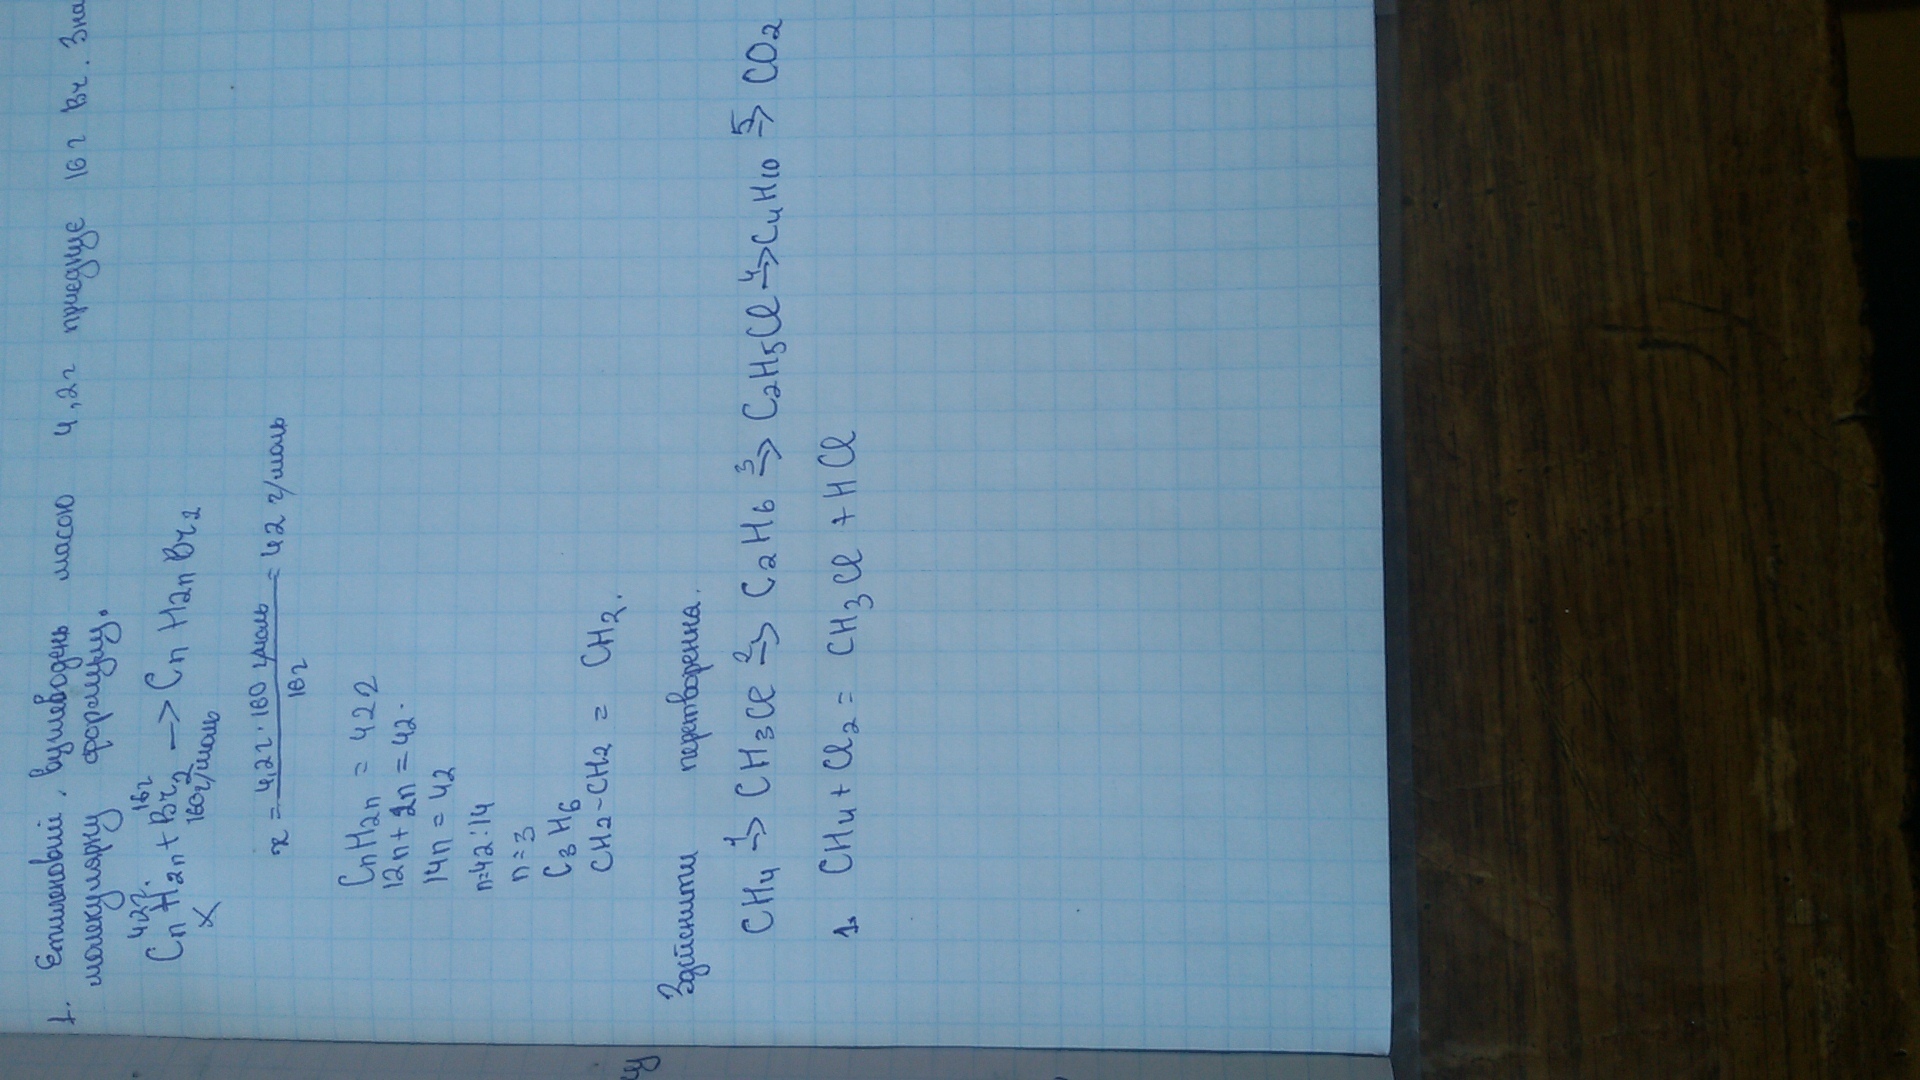 1. Етиленовий вуглеводень масою 4,2г приєднує 16г Br. Зна
молекулярну формулу.
4,2г 16г
CnH2n + Br2 —> CnH2nBr2
x 160г/моль
x = 4,2г · 160 г/моль / 16г = 42 г/моль
CnH2n = 422
12n + 2n = 42.
14n = 42
n=42:14
n=3
C3H6
CH2-CH2 = CH2.
Здіснити перетворення.
CH4 1-> CH3Cl 2-> C2H6 3-> C2H5Cl 4-> C4H10 5-> CO2
1. CH4 + Cl2 = CH3Cl + HCl